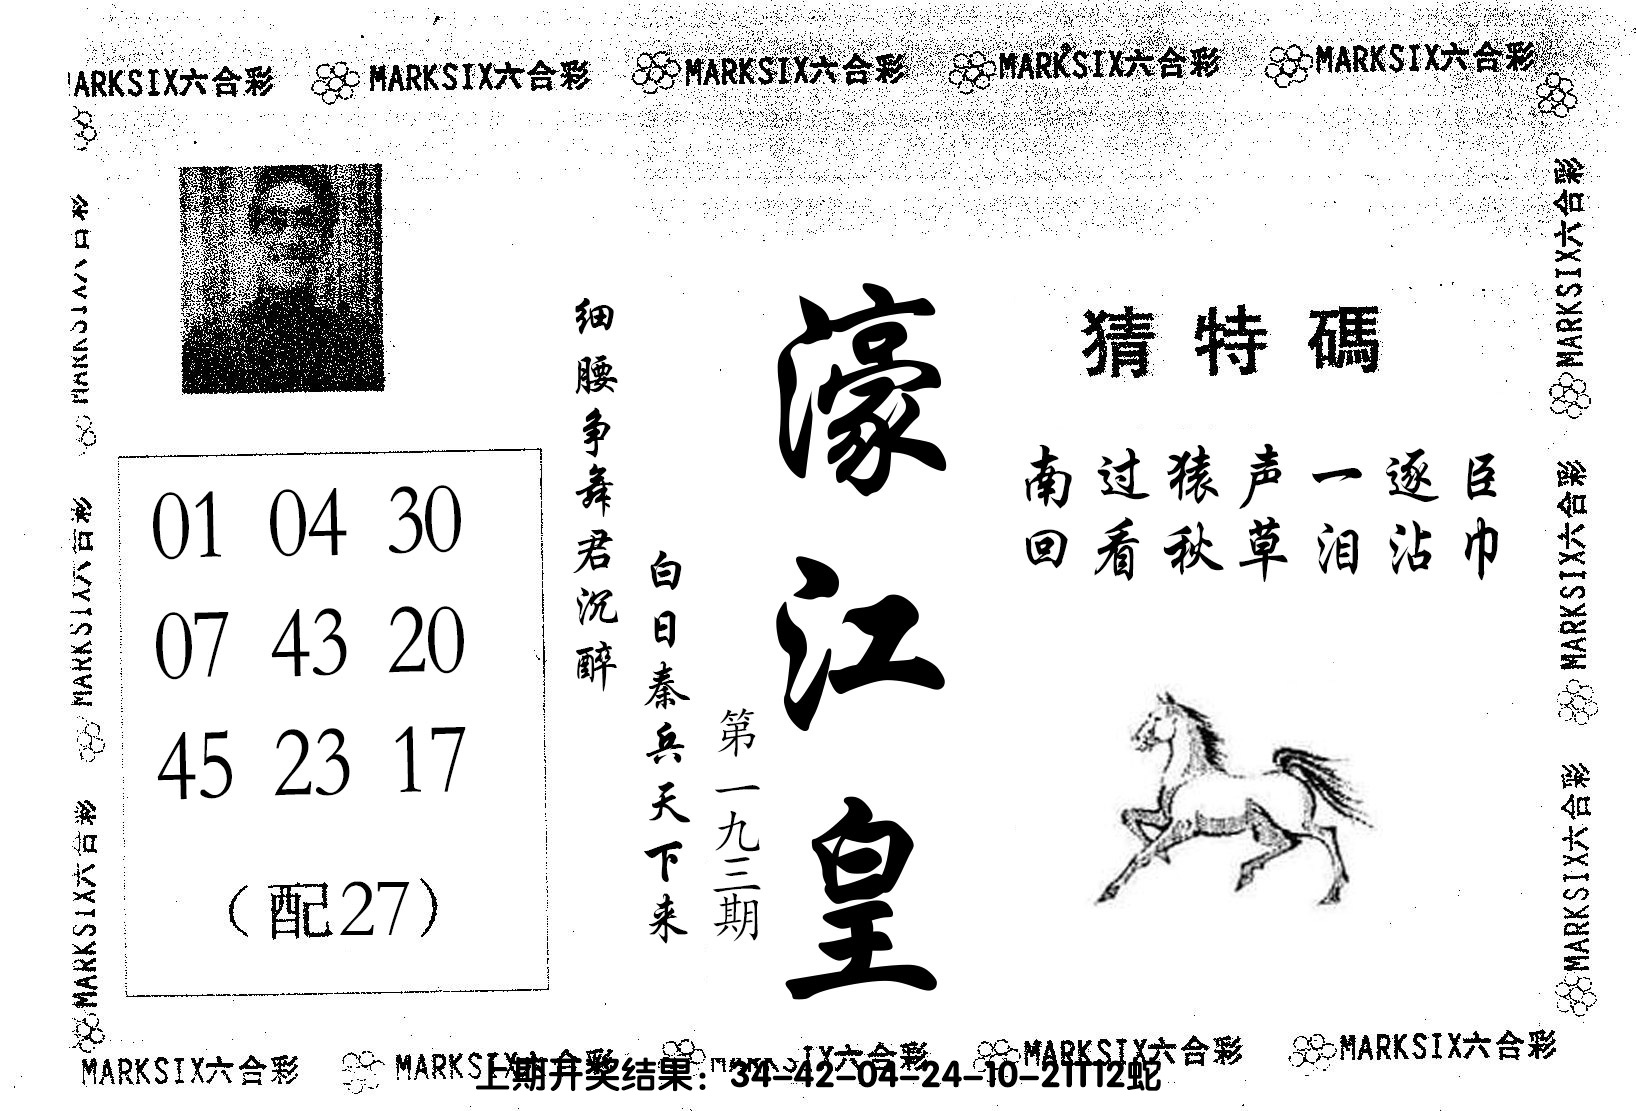 MARKSIX六合彩 MARKSIX六合彩 MARKSIX六合彩 MARKSIX六合彩 MARKSIX六合彩
猜特碼
南过猿声一逐臣
回看秋草泪沾巾
濠江皇
第一九三期
白日秦兵天下来
细腰争舞君沉醉
01 04 30
07 43 20
45 23 17
（配27）
MARKSIX六合彩
MARKSIX六合彩
MARKSIX六合彩
MARKSIX六合彩
MARKSIX六合彩
MARKSIX六合彩
MARKSIX六合彩 MARKSIX六合彩 IX六合彩 MARKSIX六合彩 MARKSIX六合彩
上期开奖结果：34-42-04-24-10-21T12蛇